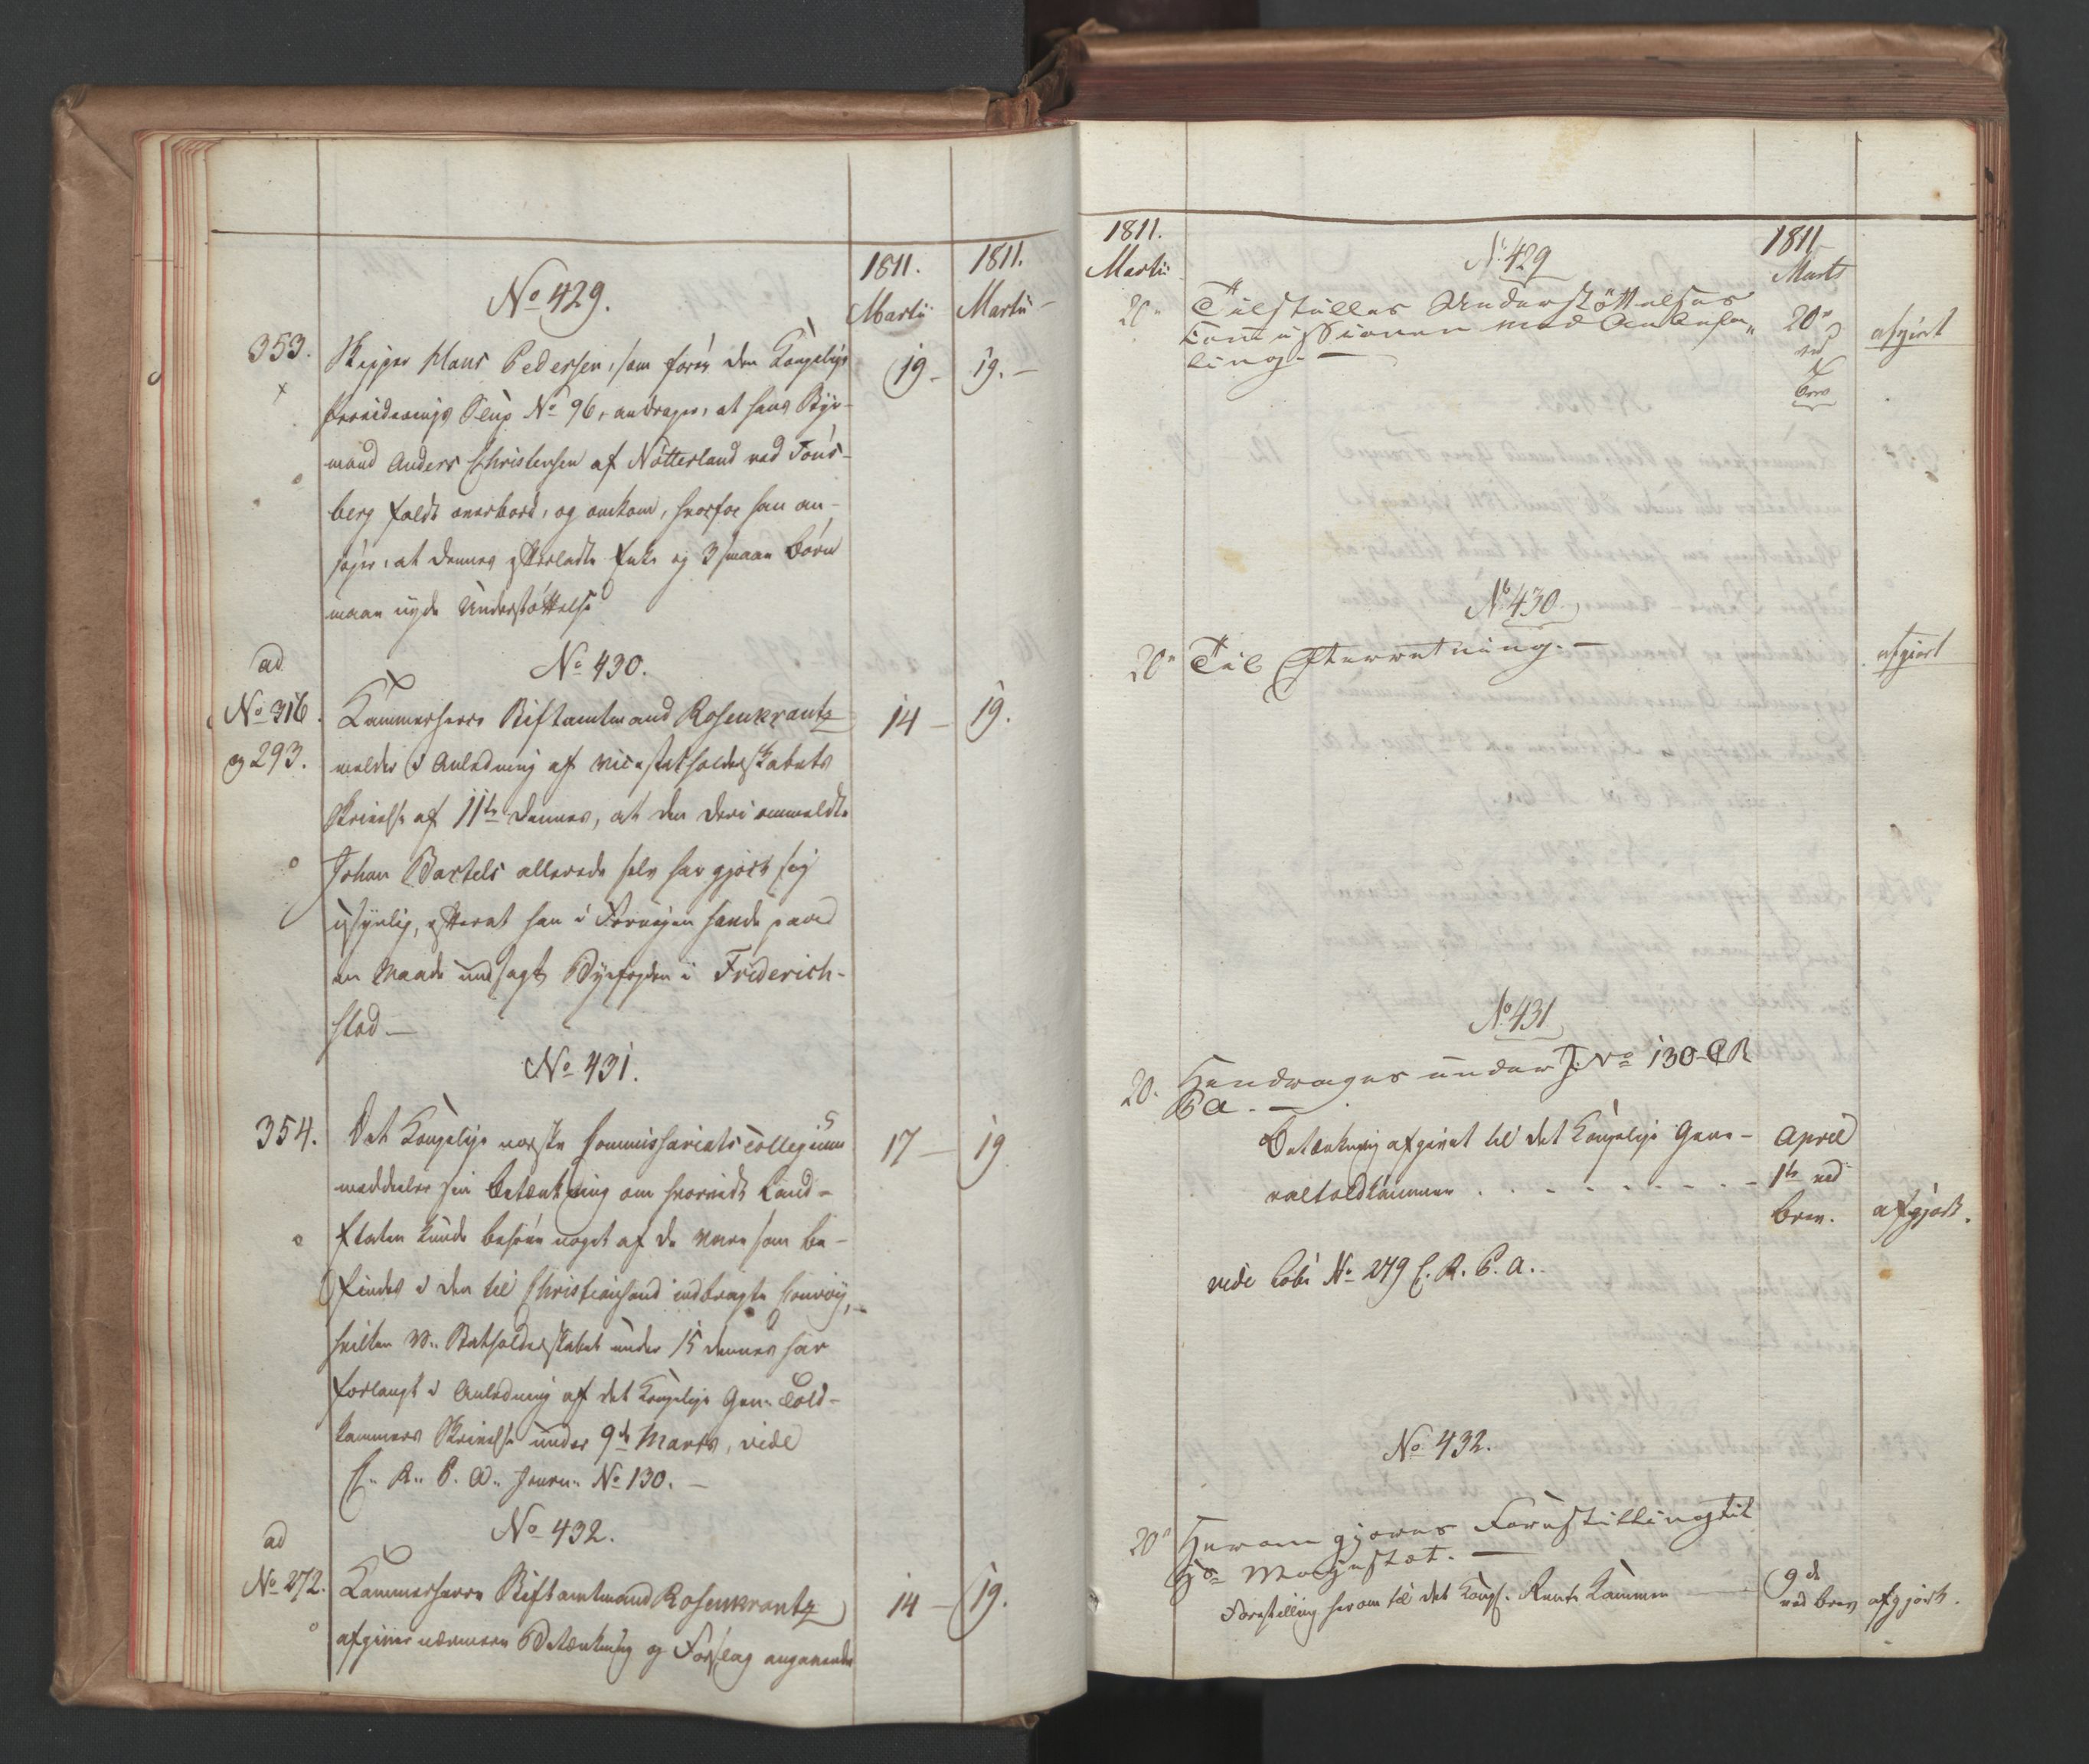 1811. 1811.
Martii Martii
No 429.
353. Skipper Hans Pedersen, som förer den Kongelige 19 - 19. -
Provideringss Slup No 96, andrager, at hans Styr-
mand Anders Christensen af Nötterland ved Töns-
berg faldt overbord, og omkom, hvorfor han an-
söger, at dennes efterladte Enke og 3 smaae börn
maae nyde Understöttelse
No 430.
ad
No 316 Kammerherre Stiftamtmand Rosenkrantz 14 - 19.
og 293. melder i Anledning af Vicestatholderskabets
Skrivelse af 11te dennes, at den deri ommeldte
Johan Bartels allerede selv har gjort sig
usynlig, efterat han i Forvejen havde paa
en Maade undsagt Byefogden i Friderich-
stad -
No 431.
354. Det Kongelige norske Commissariatscollegium 17 - 19
meddeeler sin betænkning om hvorvidt Land-
Etaten kunde behöve noget af de Vare som be-
findes i den til Christiansand indbragte Convoy,
hvilken V. Statholderskabet under 15 dennes har
forlangt i Anledning af det Kongelige Gen. Told-
kammers Skrivelse under 9de Marts, vide
C. R. P. A. Journ. No 130. -
No 432.
ad
No 272. Kammerherre Stiftamtmand Rosenkrantz 14 - 19.
afgiver nærmere Betænkning og Forslag angaaende
1811. 1811
Martii Marts
No 429
20 Tilstilles Understöttelses 20
Comissionen med Anbefa- ved afgiort
ling. - Brev
No 430
20 Til Efterretning. - afgiort
No 431
20. Hendrages under J. No 130 C R
P A. -
Betænkning afgivet til det Kongelige Gene- April
raltoldkammer . . . - - - - 1te ved
brev. afgjort.
vide Lobe No 279 C. R. P. A.
No 432.
20 Herom gjores Forestilling til
Hs Majestæt. -
Forestilling herom til det Kongl. Rente Kammer 9de
ved brev afgjort.